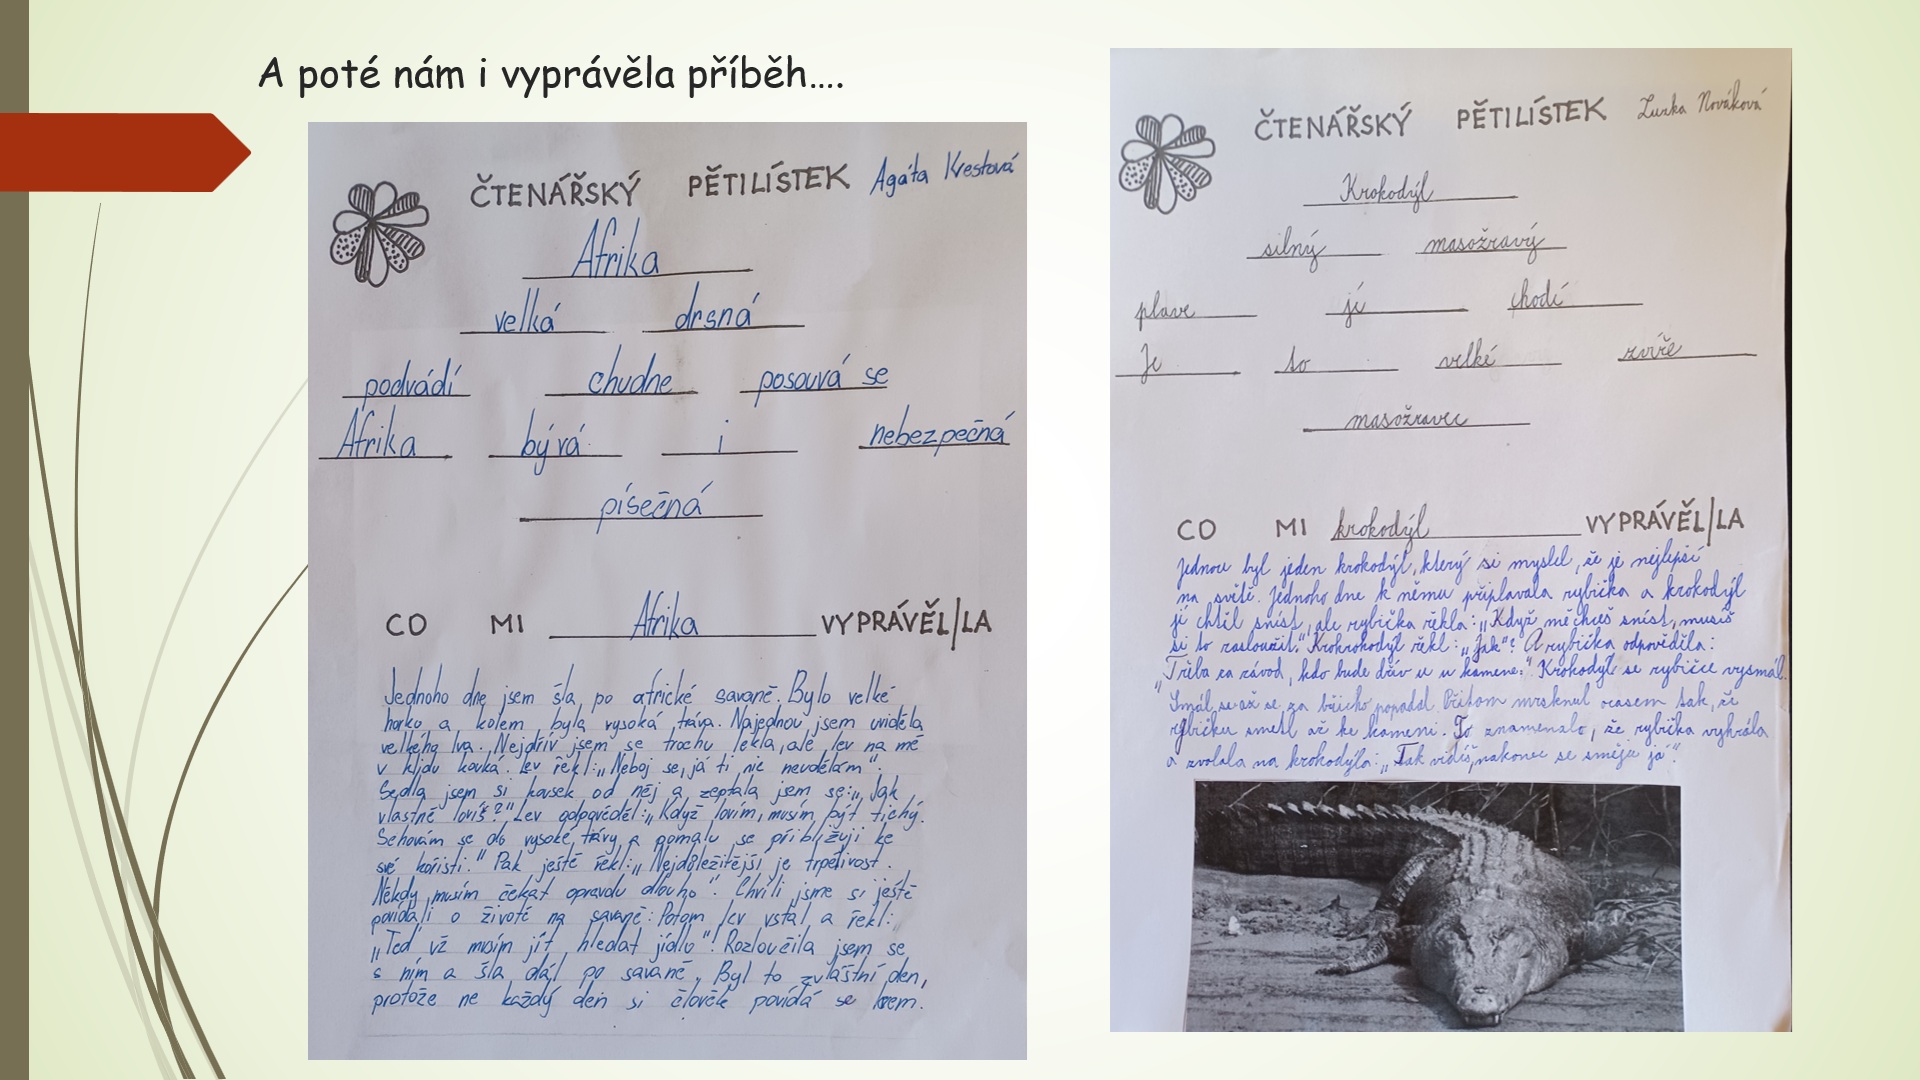 A poté nám i vyprávěla příběh....
ČTENÁŘSKÝ PĚTILÍSTEK Agáta Krestová
Afrika
velká drsná
podvádí chudne posouvá se
Afrika bývá i nebezpečná
písečná
CO MI Afrika VYPRÁVĚL/LA
Jednoho dne jsem šla po africké savaně. Bylo velké
horko a kolem byla vysoká tráva. Najednou jsem uviděla
velkého lva. Nejdřív jsem se trochu lekla, ale lev na mě
v klidu kouká. Lev řekl: „Neboj se, já ti nic neudělám".
Sedla jsem si kousek od něj a zeptala jsem se: „Jak
vlastně lovíš?" Lev odpověděl: „Když lovím, musím být tichý.
Schovám se do vysoké trávy a pomalu se přibližuji ke
své kořisti." Pak ještě řekl: „Nejdůležitější je trpělivost.
Někdy musím čekat opravdu dlouho". Chvíli jsme si ještě
povídali o životě na savaně. Potom lev vstal a řekl:
„Teď už musím jít hledat jídlo"! Rozloučila jsem se
s ním a šla dál po savaně. Byl to zvláštní den,
protože ne každý den si člověk povídá se lvem.
ČTENÁŘSKÝ PĚTILÍSTEK Luzka Nováková
Krokodýl
silný masožravý
plave jí chodí
Je to velké zvíře
masožravec
CO MI krokodýl VYPRÁVĚL/LA
Jednou byl jeden krokodýl, který si myslel, že je nejlepší
na světě. Jednoho dne k němu připlavala rybička a krokodýl
jí chtěl sníst, ale rybička řekla: „Když mě chceš sníst, musíš
si to zasloužit." Krokrokodýl řekl: „Jak"? A rybička odpověděla:
„Třeba za závod, kdo bude dřív u u kamene." Krokodýl se rybičce vysmál.
Smál se až se za břicho popadal. Přitom mrsknul ocasem tak, že
rybičku smetl až ke kameni. To znamenalo, že rybička vyhrála
a zvolala na krokodýla: „Tak vidíš, nakonec se směju já".